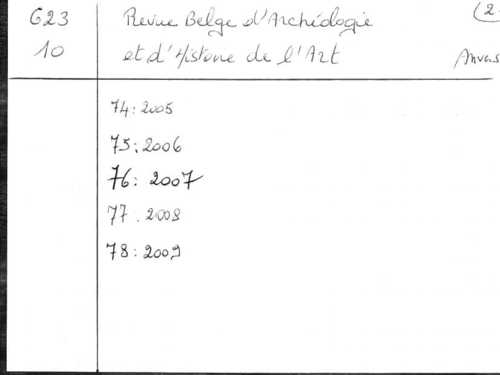 G23 Revue Belge d'Archéologie (2
10 et d'Histoire de l'Art Anvers
74: 2005
75: 2006
76: 2007
77. 2008
78: 2009